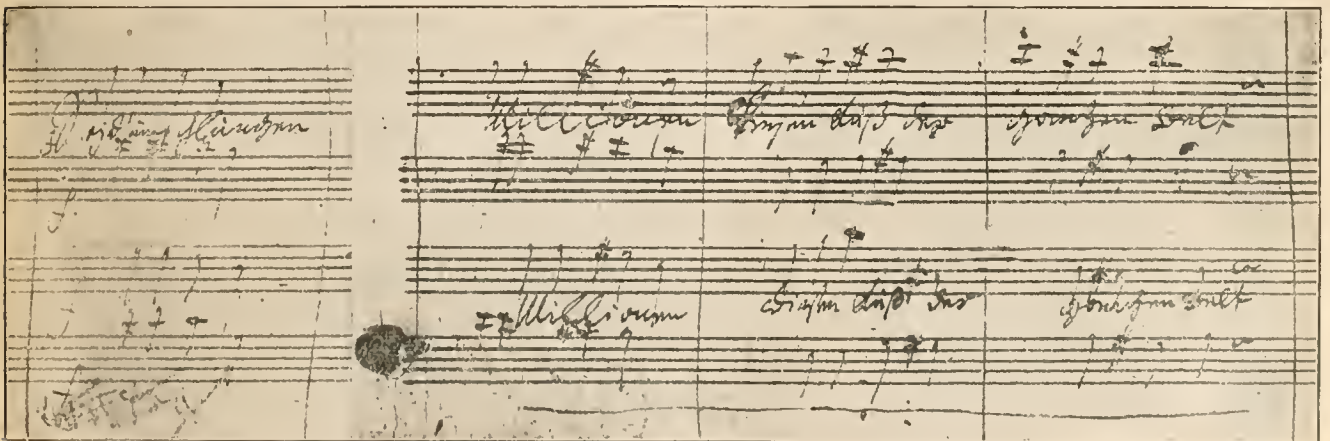 Millionen diesen Kuß der ganzen Welt
Millionen diesen Kuß der ganzen Welt